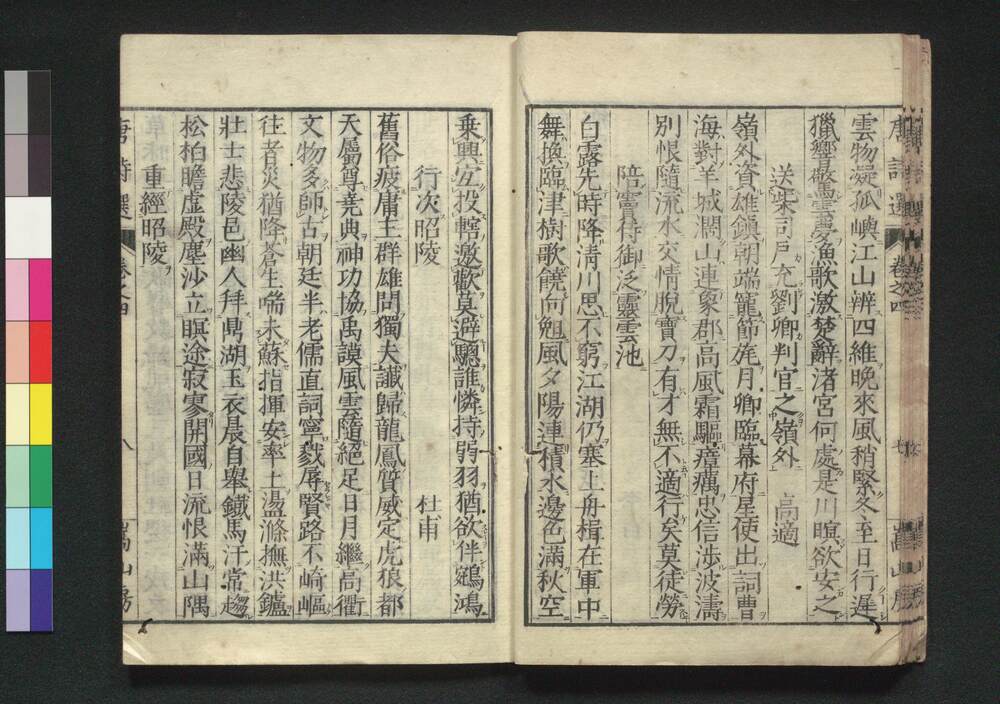 雲物凝孤嶼江山辨四維晚來風稍緊冬至日行遲
獵響驚雲夢漁歌激楚辭渚宮何處是川暝欲安之
送柴司戶充劉卿判官之嶺外 高適
嶺外資雄鎭朝端寵節旄月卿臨幕府星使出詞曹
海對羊城濶山連象郡高風霜驅瘴癘忠信涉波濤
別恨隨流水交情脫寶刀有才無不適行矣莫徒勞
陪竇侍御泛靈雲池
白露先時降清川思不窮江湖仍塞上舟楫在軍中
舞換臨津樹歌饒向晚風夕陽連積水邊色滿秋空
乗興宜投轄邀歡莫避驄誰憐持弱羽猶欲伴鵷鴻
行次昭陵 杜甫
舊俗疲庸王群雄問獨夫讖歸龍鳳質威定虎狼都
天屬尊堯典神功協禹謨風雲隨絕足日月繼高衢
文物多師古朝廷半老儒直詞寧戮辱賢路不崎嶇
往者災猶降蒼生喘未蘇指揮安率土盪滌撫洪鑪
壯士悲陵邑幽人拜鼎湖玉衣晨自舉鐵馬汗常趨
松柏瞻虛殿塵沙立暝途寂寥開國日流恨滿山隅
重經昭陵
唐詩選 卷之四 八 嵩山房